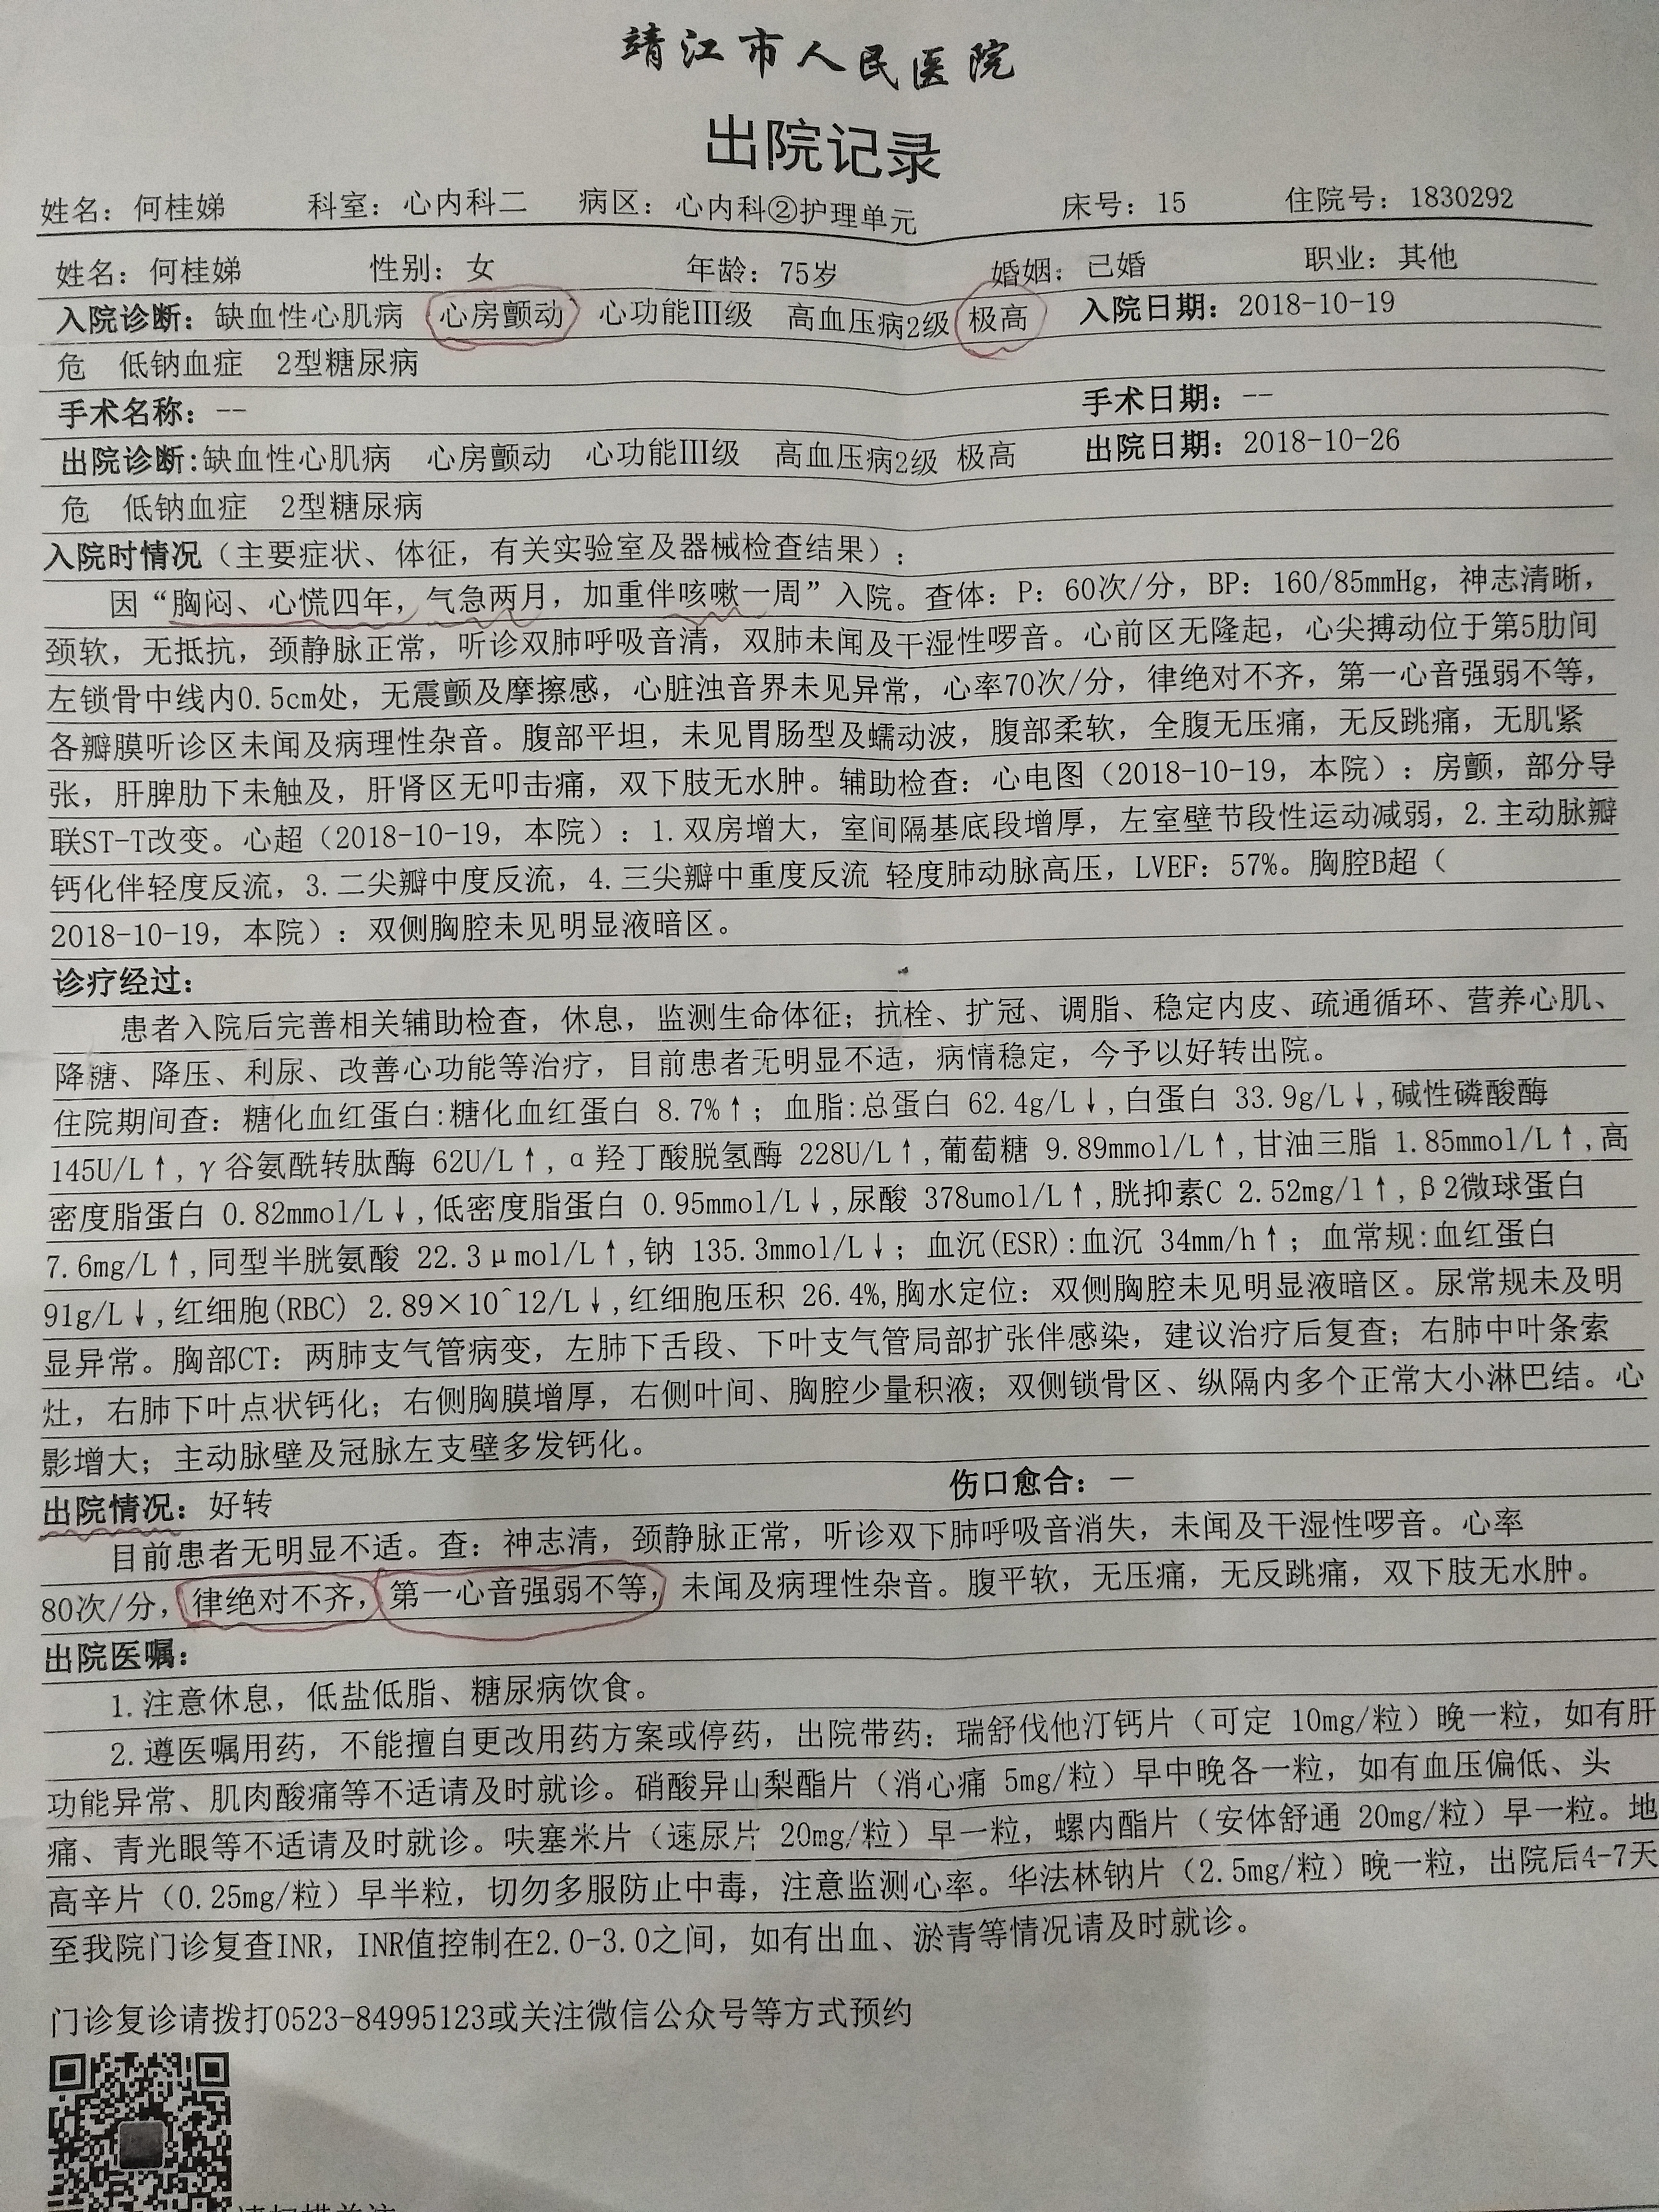 靖江市人民医院
出院记录
姓名：何桂娣 科室：心内科二 病区：心内科②护理单元 床号：15 住院号：1830292
姓名：何桂娣 性别：女 年龄：75岁 婚姻：已婚 职业：其他
入院诊断：缺血性心肌病 心房颤动 心功能III级 高血压病2级 极高 入院日期：2018-10-19
危 低钠血症 2型糖尿病
手术名称：-- 手术日期：--
出院诊断:缺血性心肌病 心房颤动 心功能III级 高血压病2级 极高 出院日期：2018-10-26
危 低钠血症 2型糖尿病
入院时情况（主要症状、体征，有关实验室及器械检查结果）：
因“胸闷、心慌四年，气急两月，加重伴咳嗽一周”入院。查体：P：60次/分，BP：160/85mmHg，神志清晰，
颈软，无抵抗，颈静脉正常，听诊双肺呼吸音清，双肺未闻及干湿性啰音。心前区无隆起，心尖搏动位于第5肋间
左锁骨中线内0.5cm处，无震颤及摩擦感，心脏浊音界未见异常，心率70次/分，律绝对不齐，第一心音强弱不等，
各瓣膜听诊区未闻及病理性杂音。腹部平坦，未见胃肠型及蠕动波，腹部柔软，全腹无压痛，无反跳痛，无肌紧
张，肝脾肋下未触及，肝肾区无叩击痛，双下肢无水肿。辅助检查：心电图（2018-10-19，本院）：房颤，部分导
联ST-T改变。心超（2018-10-19，本院）：1.双房增大，室间隔基底段增厚，左室壁节段性运动减弱，2.主动脉瓣
钙化伴轻度反流，3.二尖瓣中度反流，4.三尖瓣中重度反流 轻度肺动脉高压，LVEF：57%。胸腔B超（
2018-10-19，本院）：双侧胸腔未见明显液暗区。
诊疗经过：
患者入院后完善相关辅助检查，休息，监测生命体征；抗栓、扩冠、调脂、稳定内皮、疏通循环、营养心肌、
降糖、降压、利尿、改善心功能等治疗，目前患者无明显不适，病情稳定，今予以好转出院。
住院期间查：糖化血红蛋白:糖化血红蛋白 8.7%↑；血脂:总蛋白 62.4g/L↓,白蛋白 33.9g/L↓,碱性磷酸酶
145U/L↑,γ谷氨酰转肽酶 62U/L↑,α羟丁酸脱氢酶 228U/L↑,葡萄糖 9.89mmol/L↑,甘油三脂 1.85mmol/L↑,高
密度脂蛋白 0.82mmol/L↓,低密度脂蛋白 0.95mmol/L↓,尿酸 378umol/L↑,胱抑素C 2.52mg/l↑,β2微球蛋白
7.6mg/L↑,同型半胱氨酸 22.3μmol/L↑,钠 135.3mmol/L↓；血沉(ESR):血沉 34mm/h↑；血常规:血红蛋白
91g/L↓,红细胞(RBC) 2.89×10^12/L↓,红细胞压积 26.4%,胸水定位：双侧胸腔未见明显液暗区。尿常规未及明
显异常。胸部CT：两肺支气管病变，左肺下舌段、下叶支气管局部扩张伴感染，建议治疗后复查；右肺中叶条索
灶，右肺下叶点状钙化；右侧胸膜增厚，右侧叶间、胸腔少量积液；双侧锁骨区、纵隔内多个正常大小淋巴结。心
影增大；主动脉壁及冠脉左支壁多发钙化。
出院情况：好转 伤口愈合：—
目前患者无明显不适。查：神志清，颈静脉正常，听诊双下肺呼吸音消失，未闻及干湿性啰音。心率
80次/分，律绝对不齐，第一心音强弱不等，未闻及病理性杂音。腹平软，无压痛，无反跳痛，双下肢无水肿。
出院医嘱：
1.注意休息，低盐低脂、糖尿病饮食。
2.遵医嘱用药，不能擅自更改用药方案或停药，出院带药：瑞舒伐他汀钙片（可定 10mg/粒）晚一粒，如有肝
功能异常、肌肉酸痛等不适请及时就诊。硝酸异山梨酯片（消心痛 5mg/粒）早中晚各一粒，如有血压偏低、头
痛、青光眼等不适请及时就诊。呋塞米片（速尿片 20mg/粒）早一粒，螺内酯片（安体舒通 20mg/粒）早一粒。地
高辛片（0.25mg/粒）早半粒，切勿多服防止中毒，注意监测心率。华法林钠片（2.5mg/粒）晚一粒，出院后4-7天
至我院门诊复查INR，INR值控制在2.0-3.0之间，如有出血、淤青等情况请及时就诊。
门诊复诊请拨打0523-84995123或关注微信公众号等方式预约